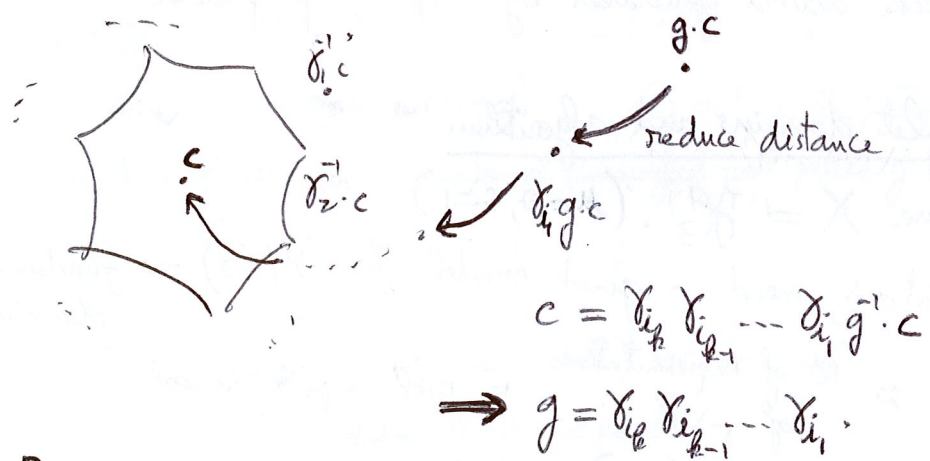 g.c
γ₁⁻¹c
c
reduce distance
γ₂⁻¹.c
γ_{i₁}g.c
c = γ_{i_k} γ_{i_{k-1}} ---- γ_{i_1} g⁻¹.c
⟹ g = γ_{i_k} γ_{i_{k-1}} ---- γ_{i_1}.